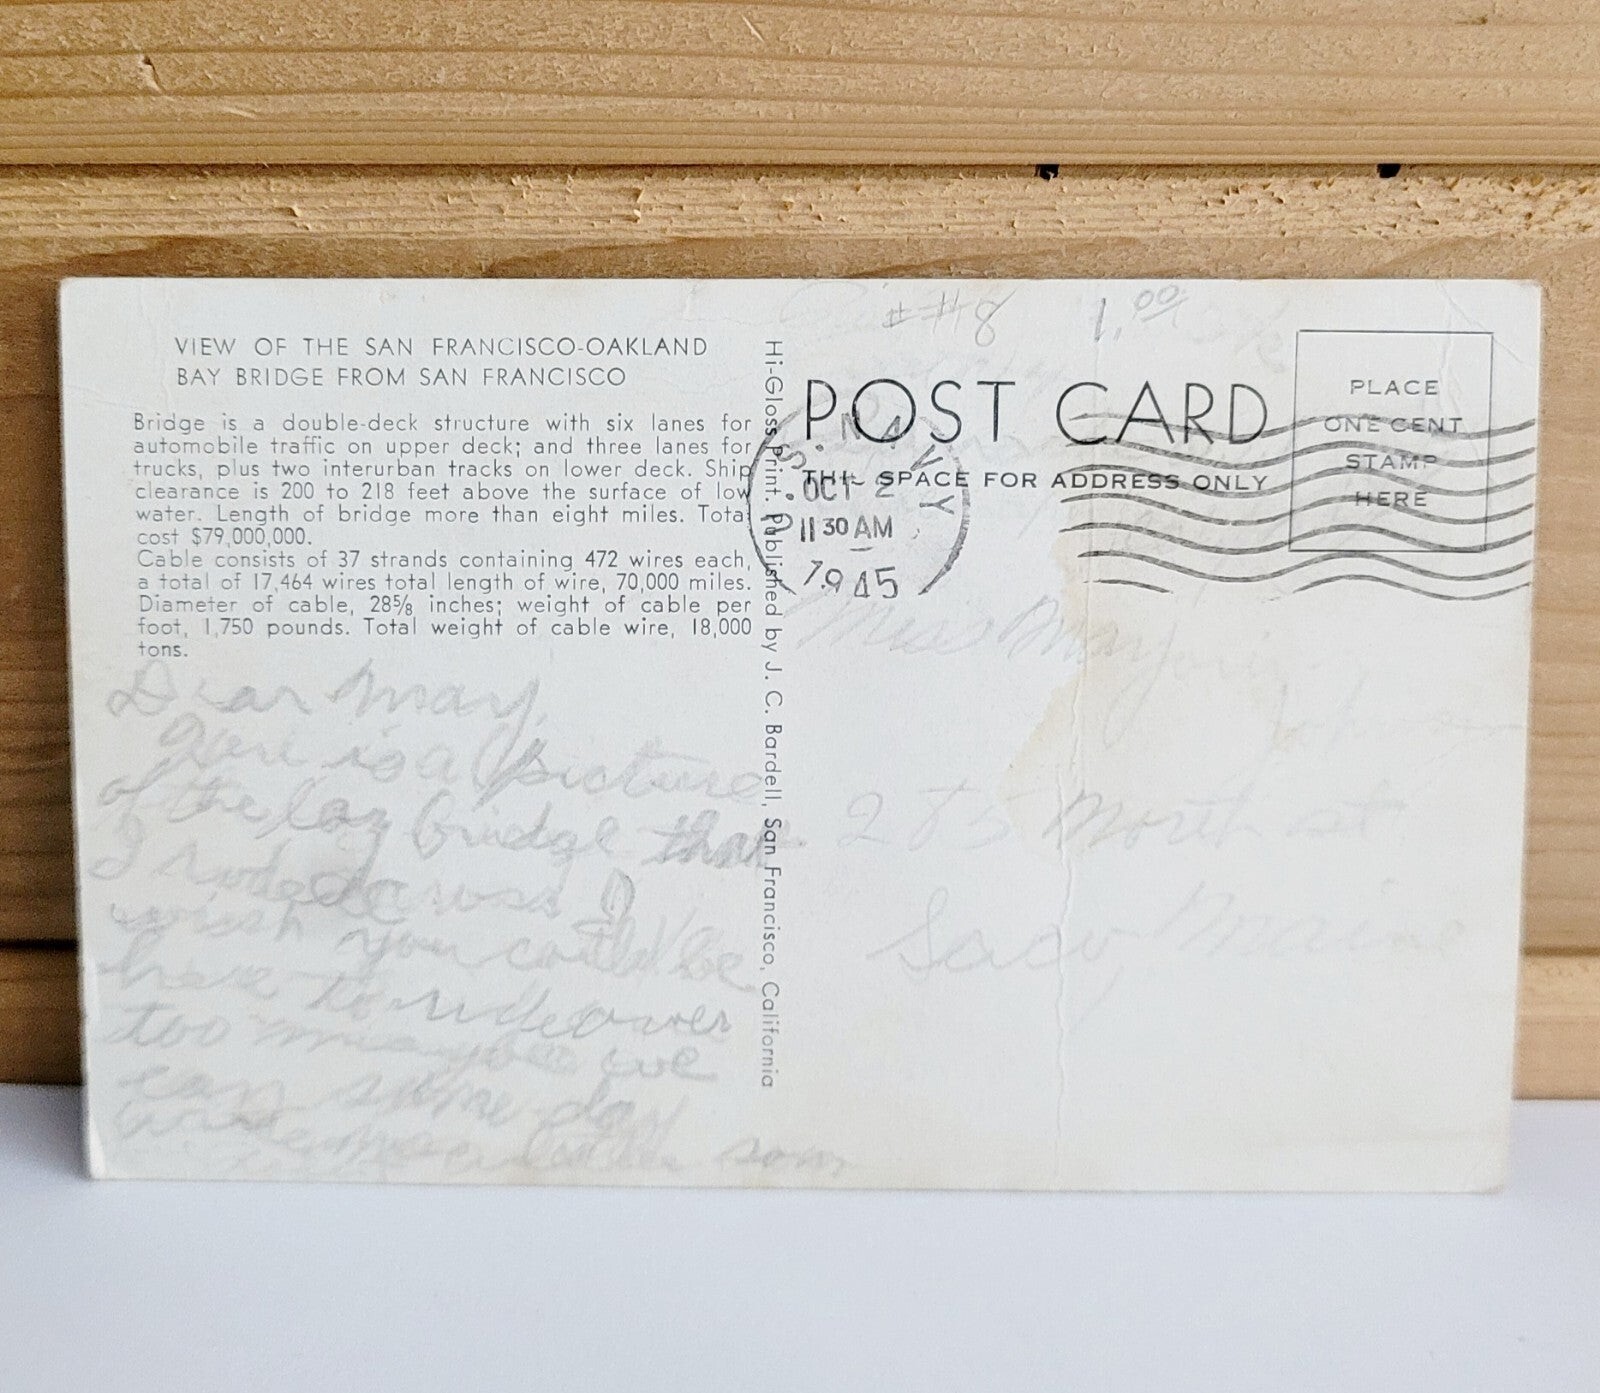 VIEW OF THE SAN FRANCISCO-OAKLAND
BAY BRIDGE FROM SAN FRANCISCO
Bridge is a double-deck structure with six lanes for
automobile traffic on upper deck; and three lanes for
trucks, plus two interurban tracks on lower deck. Ship
clearance is 200 to 218 feet above the surface of low
water. Length of bridge more than eight miles. Total
cost $79,000,000.
Cable consists of 37 strands containing 472 wires each,
a total of 17,464 wires total length of wire, 70,000 miles.
Diameter of cable, 28⅝ inches; weight of cable per
foot, 1,750 pounds. Total weight of cable wire, 18,000
tons.
Dear Marj,
Here is a picture
of the bay bridge that
I rode across I
wish you could be
here to ride over
too maybe we
can some day
Hi-Gloss Print. Published by J. C. Bardell, San Francisco, California
##8 1.00
POST CARD
THIS SPACE FOR ADDRESS ONLY
U.S. NAVY
OCT 2
11 30 AM
1945
PLACE
ONE CENT
STAMP
HERE
Miss Marjorie
Johnson
North st
Saco, Maine